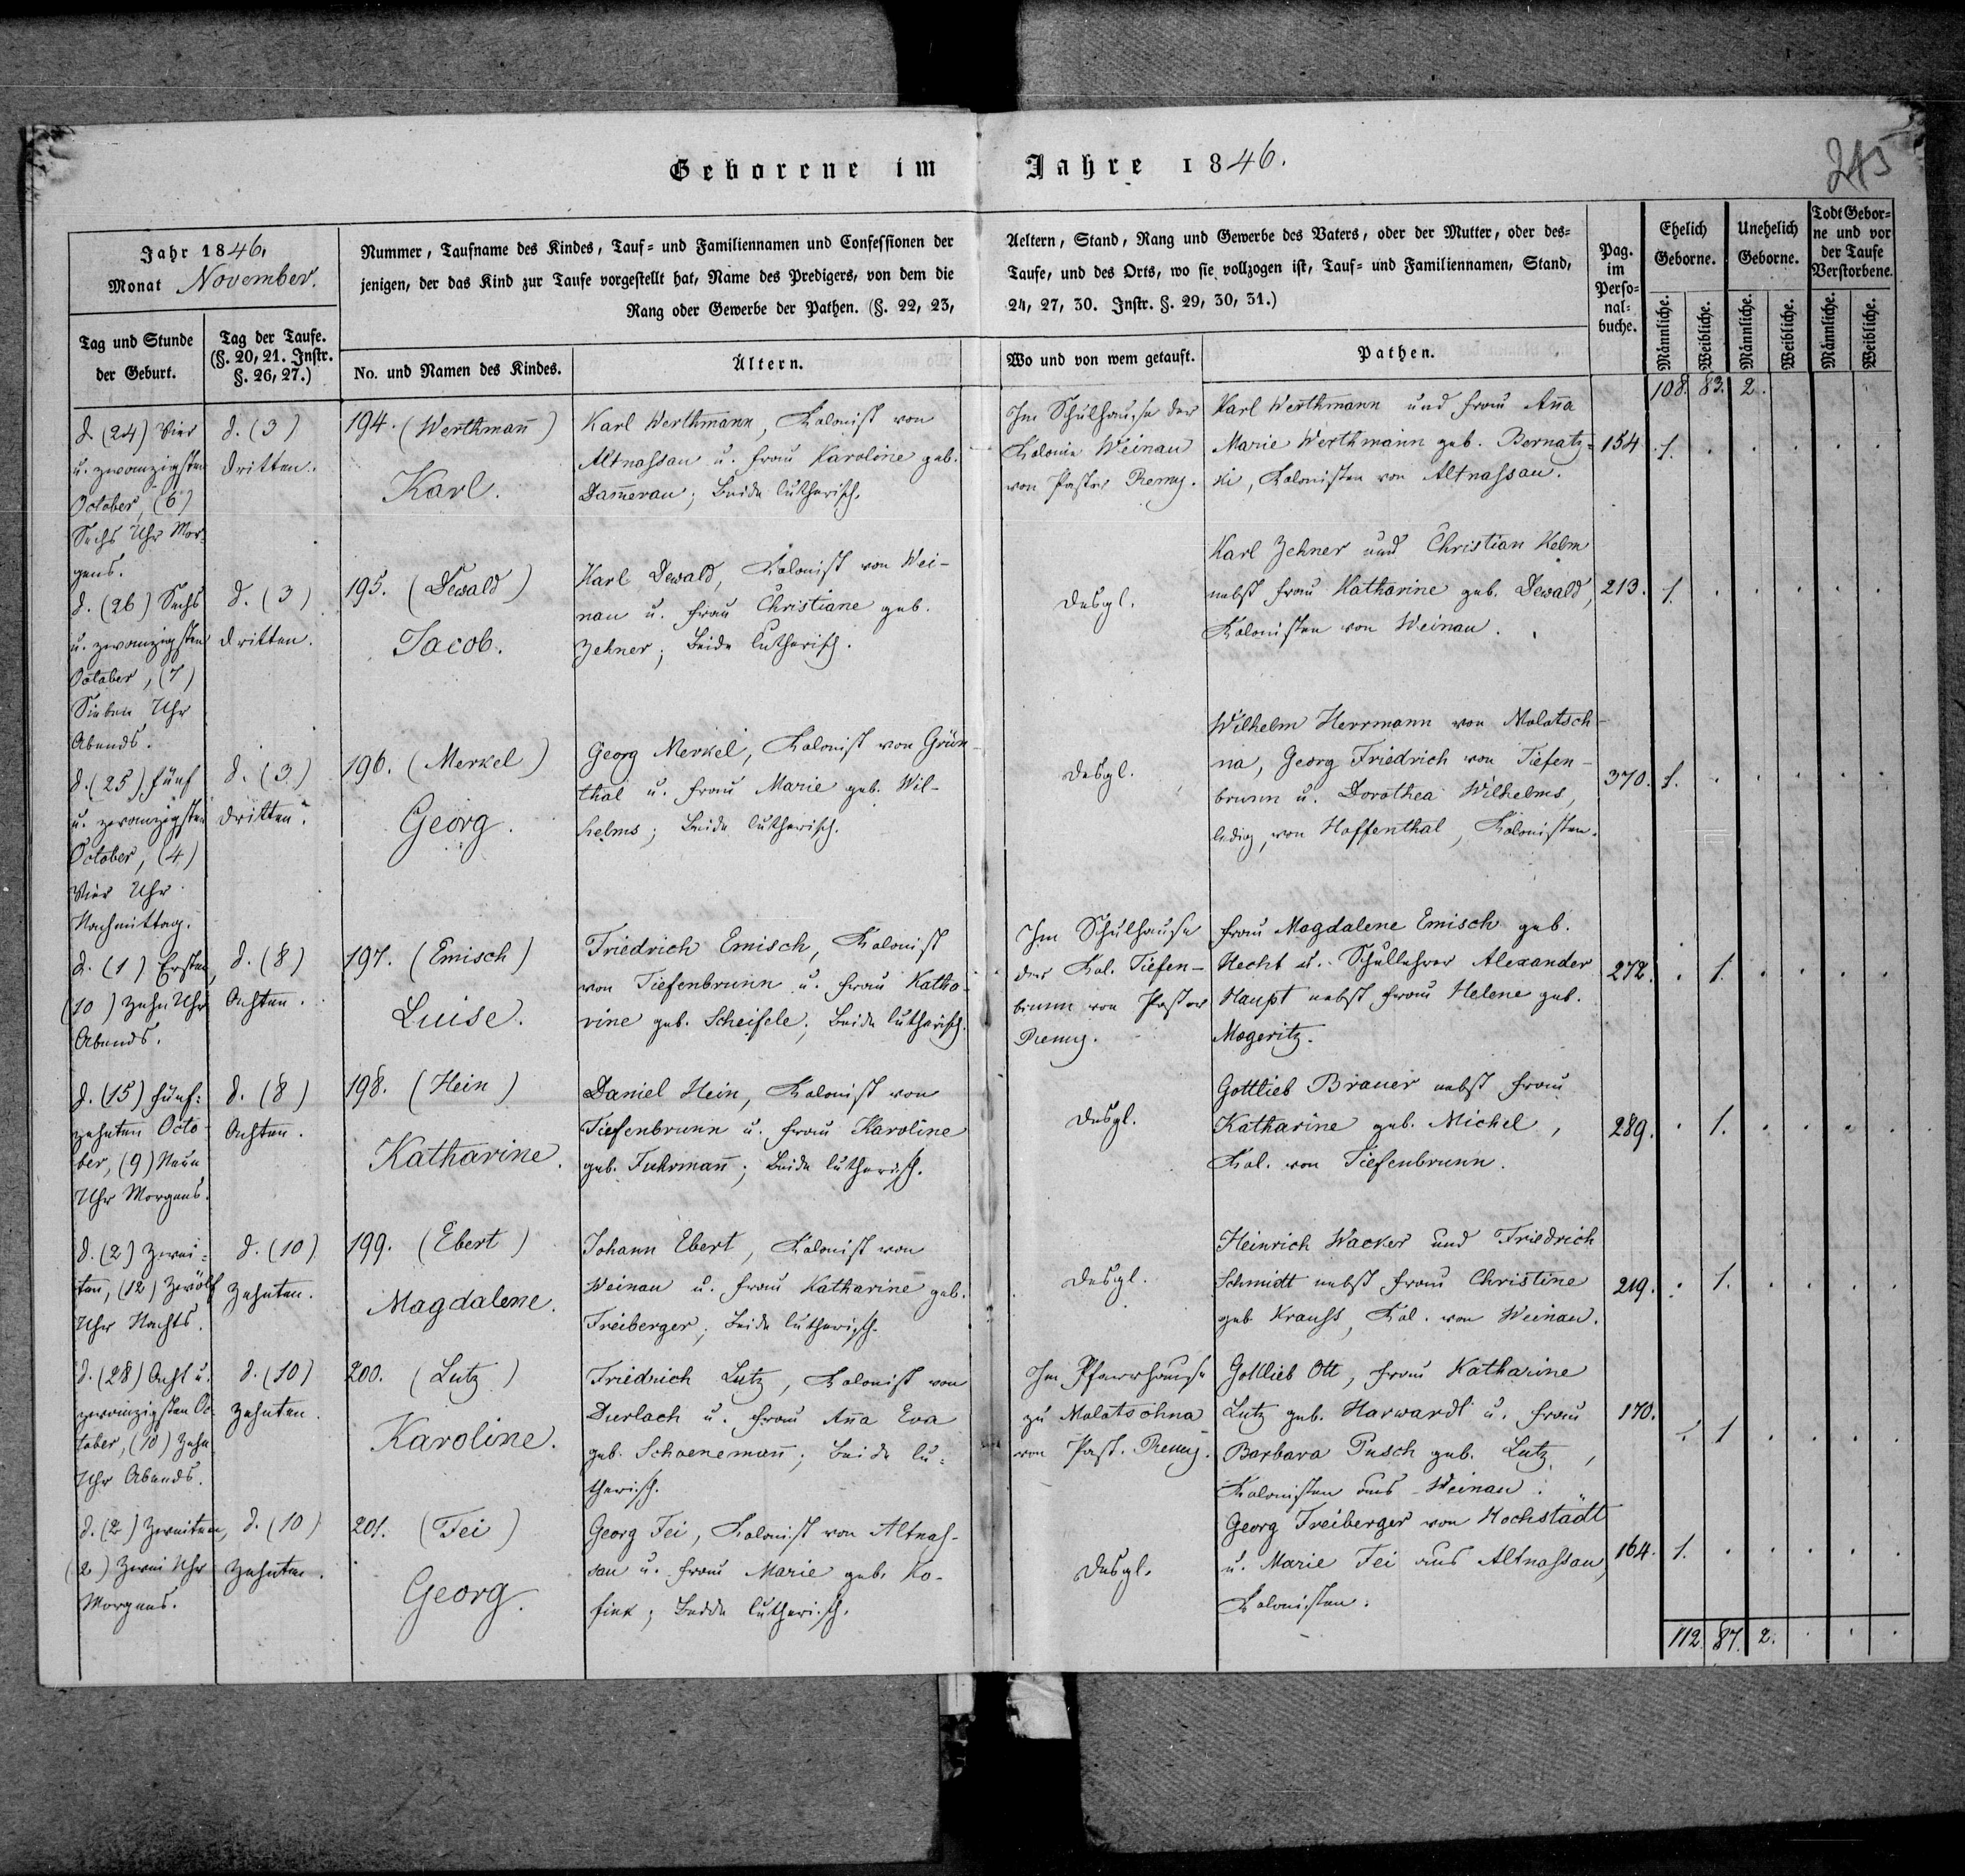 Geborene im Jahre 1846.
243
Jahr 1846.
Monat November.
Nummer, Taufname des Kindes, Tauf- und Familiennamen und Confessionen der
jenigen, der das Kind zur Taufe vorgestellt hat, Name des Predigers, von dem die
Rang oder Gewerbe der Pathen. (§. 22, 23,
Aeltern, Stand, Rang und Gewerbe des Vaters, oder der Mutter, oder des-
Taufe, und des Orts, wo sie vollzogen ist, Tauf- und Familiennamen, Stand,
24, 27, 30. Instr. §. 29, 30, 31.)
Pag.
im
Perso-
nal-
buche.
Ehelich
Geborne.
Unehelich
Geborne.
Todt Gebor-
ne und vor
der Taufe
Verstorbene.
Tag und Stunde
der Geburt.
Tag der Taufe.
(§. 20, 21. Instr.
§. 26, 27.)
No. und Namen des Kindes.
Ältern.
Wo und von wem getauft.
Pathen.
Männliche.
Weibliche.
Männliche.
Weibliche.
Männliche.
Weibliche.
108. 83. 2.
d. (24) Vier
u. zwanzigsten
October, (6)
Sechs Uhr Mor-
gens.
d. (3)
dritten.
194. (Werthmañ)
Karl.
Karl Werthmann, Kolonist von
Altnassau u. Frau Karoline geb.
Dam̄erau; Beide lutherisch.
Im Schulhause der
Kolonie Weinau
von Pastor Remy.
Karl Werthmann und Frau Aña
Marie Werthmann geb. Bernatz-
ki, Kolonisten von Altnassau.
154. 1.
d. (26) Sechs
u. zwanzigsten
October, (7)
Sieben Uhr
Abends.
d. (3)
dritten.
195. (Dewald)
Jacob.
Karl Dewald, Kolonist von Wei-
nau u. Frau Christiane geb.
Zehner; Beide lutherisch.
Desgl.
Karl Zehner und Christian Kelm
nebst Frau Katharine geb. Dewald,
Kolonisten von Weinau.
213. 1.
d. (25) Fünf
u. zwanzigsten
October, (4)
Vier Uhr
Nachmittag.
d. (3)
dritten.
196. (Merkel)
Georg.
Georg Merkel, Kolonist von Grün-
thal u. Frau Marie geb. Wil-
helms; Beide lutherisch.
Desgl.
Wilhelm Herrmann von Molotsch-
na, Georg Friedrich von Tiefen-
brunn u. Dorothea Wilhelms,
ledig, von Hoffenthal, Kolonisten.
370. 1.
d. (1) Ersten,
(10) Zehn Uhr
Abends.
d. (8)
Achten.
197. (Emisch)
Luise.
Friedrich Emisch, Kolonist
von Tiefenbrunn u. Frau Katha-
rine geb. Scheifele; Beide lutherisch.
Im Schulhause
der Kol. Tiefen-
brunn von Pastor
Remy.
Frau Magdalene Emisch geb.
Hecht u. Schullehrer Alexander
Haupt nebst Frau Helene geb.
Mogeritz.
272. 1.
d. (15) Fünf-
zehnten Octo-
ber, (9) Neun
Uhr Morgens.
d. (8)
Achten.
198. (Hein)
Katharine.
Daniel Hein, Kolonist von
Tiefenbrunn u. Frau Karoline
geb. Fuhrmañ; Beide lutherisch.
Desgl.
Gottlieb Brauer nebst Frau
Katharine geb. Michel,
Kol. von Tiefenbrunn.
289. 1.
d. (2) Zwei-
ten, (12) Zwölf
Uhr Nachts.
d. (10)
Zehnten.
199. (Ebert)
Magdalene.
Johann Ebert, Kolonist von
Weinau u. Frau Katharine geb.
Freiberger; Beide lutherisch.
Desgl.
Heinrich Wacker und Friedrich
Schmidt nebst Frau Christine
geb. Krauss, Kol. von Weinau.
219. 1.
d. (28) Acht u.
zwanzigsten Oc-
tober, (10) Zehn
Uhr Abends.
d. (10)
Zehnten.
200. (Lutz)
Karoline.
Friedrich Lutz, Kolonist von
Durlach u. Frau Aña Eva
geb. Schoenemañ; Beide lu-
therisch.
Im Pfarrhause
zu Molotschna
von Past. Remy.
Gottlieb Ott, Frau Katharine
Lutz geb. Harwardt u. Frau
Barbara Pusch geb. Lutz,
Kolonisten aus Weinau.
170. 1
d. (2) Zweiten,
(2) Zwei Uhr
Morgens.
d. (10)
Zehnten.
201. (Fei)
Georg.
Georg Fei, Kolonist von Altnas-
sau u. Frau Marie geb. Ko-
fink; Beide lutherisch.
Desgl.
Georg Freiberger von Hochstädt
u. Marie Fei aus Altnassau,
Kolonisten.
164. 1.
112. 87. 2.